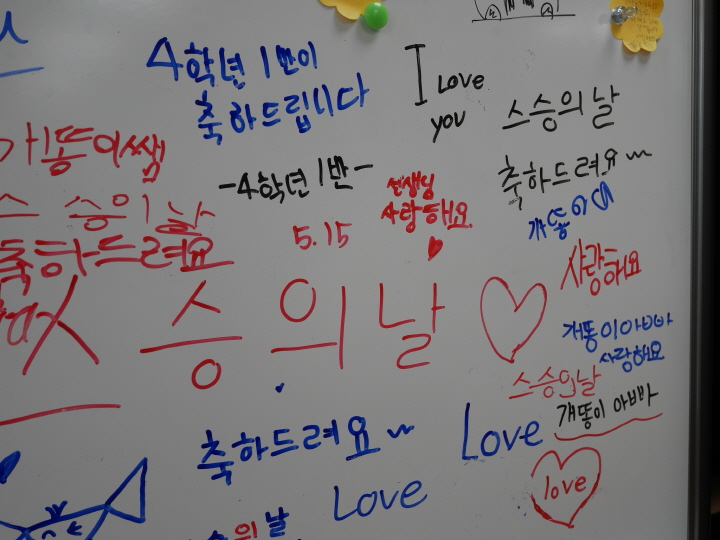 4학년 1반이
축하드립니다
I Love
you
스승의 날
축하드려요~
개똥이쌤
스승의날
축하드려요
-4학년 1반-
5.15
선생님
사랑해요
스승의날
사랑해요
개똥이아빠
사랑해요
스승의날
개똥이 아빠
축하드려요~
Love
Love
love
의 날